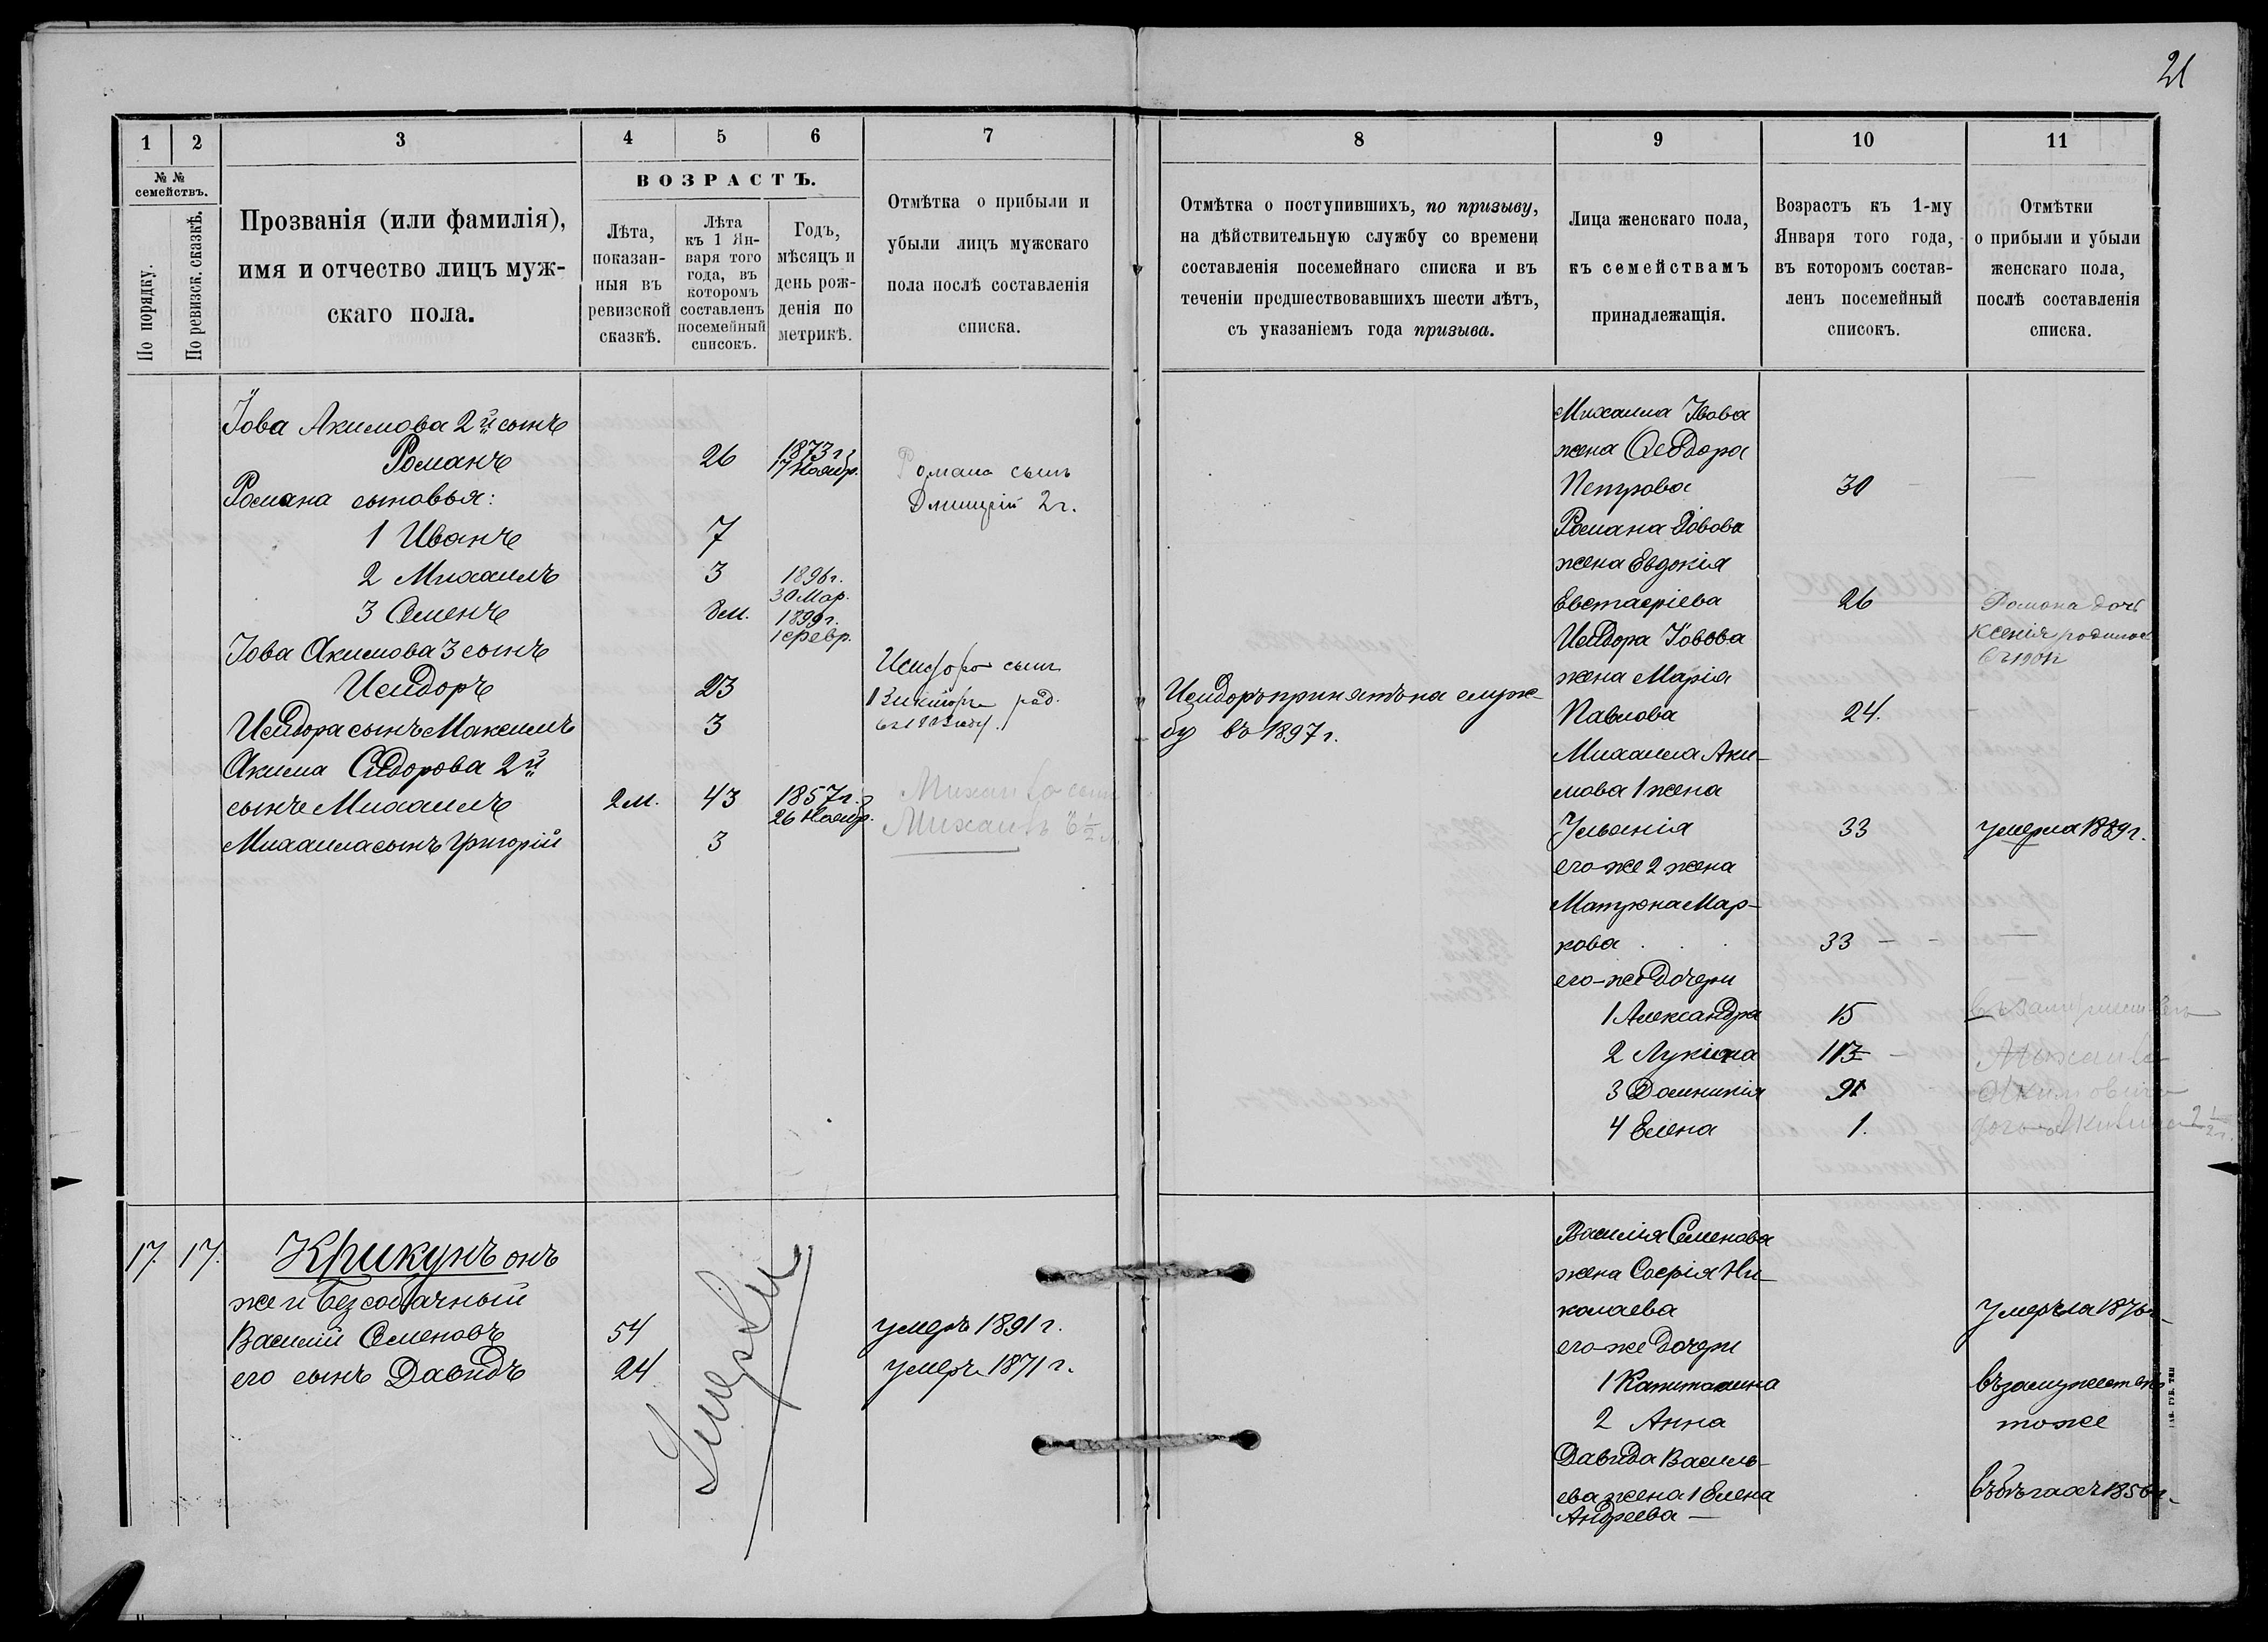 21
1
2
3
4
5
6
7
8
9
10
11
№ №
семействъ.
По порядку.
По ревизск. сказкѣ.
Прозванія (или фамилія),
имя и отчество лицъ муж-
скаго пола.
ВОЗРАСТЪ.
Лѣта,
показан-
ныя въ
ревизской
сказкѣ.
Лѣта
къ 1 Ян-
варя того
года, въ
которомъ
составленъ
посемейный
списокъ.
Годъ,
мѣсяцъ и
день рож-
денія по
метрикѣ.
Отмѣтка о прибыли и
убыли лицъ мужскаго
пола послѣ составленія
списка.
Отмѣтка о поступившихъ, по призыву,
на дѣйствительную службу со времени
составленія посемейнаго списка и въ
теченіи предшествовавшихъ шести лѣтъ,
съ указаніемъ года призыва.
Лица женскаго пола,
къ семействамъ
принадлежащія.
Возрастъ къ 1-му
Января того года,
въ которомъ состав-
ленъ посемейный
списокъ.
Отмѣтки
о прибыли и убыли
женскаго пола,
послѣ составленія
списка.
Іова Акимова 2й сынъ
Романъ 26 1873 г.
17 Ноябр.
Романа сыновья:
1 Иванъ 7
2 Михаилъ 3 1896 г.
30 Мар.
3 Семенъ 8 м. 1899 г.
1 февр.
Іова Акимова 3 сынъ
Исидоръ 23
Исидора сынъ Максимъ 3
Акима Сидорова 2й
сынъ Михаилъ 2 м. 43 1857 г.
26 Ноябр.
Михаила сынъ Григорій 3
Романа сынъ
Дмитрій 2 г.
Исидора сынъ
1 Викторъ род.
Михаила сынъ
Михаилъ 6 ½
Исидоръ принятъ на служ-
бу въ 1897 г.
Михаила Іовова
жена Ѳеодора
Петрова 30 —
Романа Іовова
жена Евдокія
Евстафіева 26
Исидора Іовова
жена Марія
Павлова 24.
Михаила Аки-
мова 1 жена
Ульянія 33 умерла 1889 г.
его-же 2 жена
Матрона Мар-
кова 33 —
его-же дочери
1 Александра 15
2 Лукія
3 Домникія
4 Елена 1.
Романа дочь
Ксенія родилась
въ 1901 г
въ замужествѣ
Михаила
Акимовича
дочь Акилина 2 ½ г.
17. 17. Крикунъ онъ
же и Безсобачный
Василій Семеновъ 54 умеръ 1891 г.
его сынъ Давидъ 24 умеръ 1871 г.
Умерли
Василія Семенова
жена Софія Ни-
колаева умерла 1876 г.
его-же дочери
1 Капитолина въ замужествѣ
2 Анна тоже
Давида Василь-
ева жена 1 Елена
Андреева —
въ бѣгахъ 1856 г.